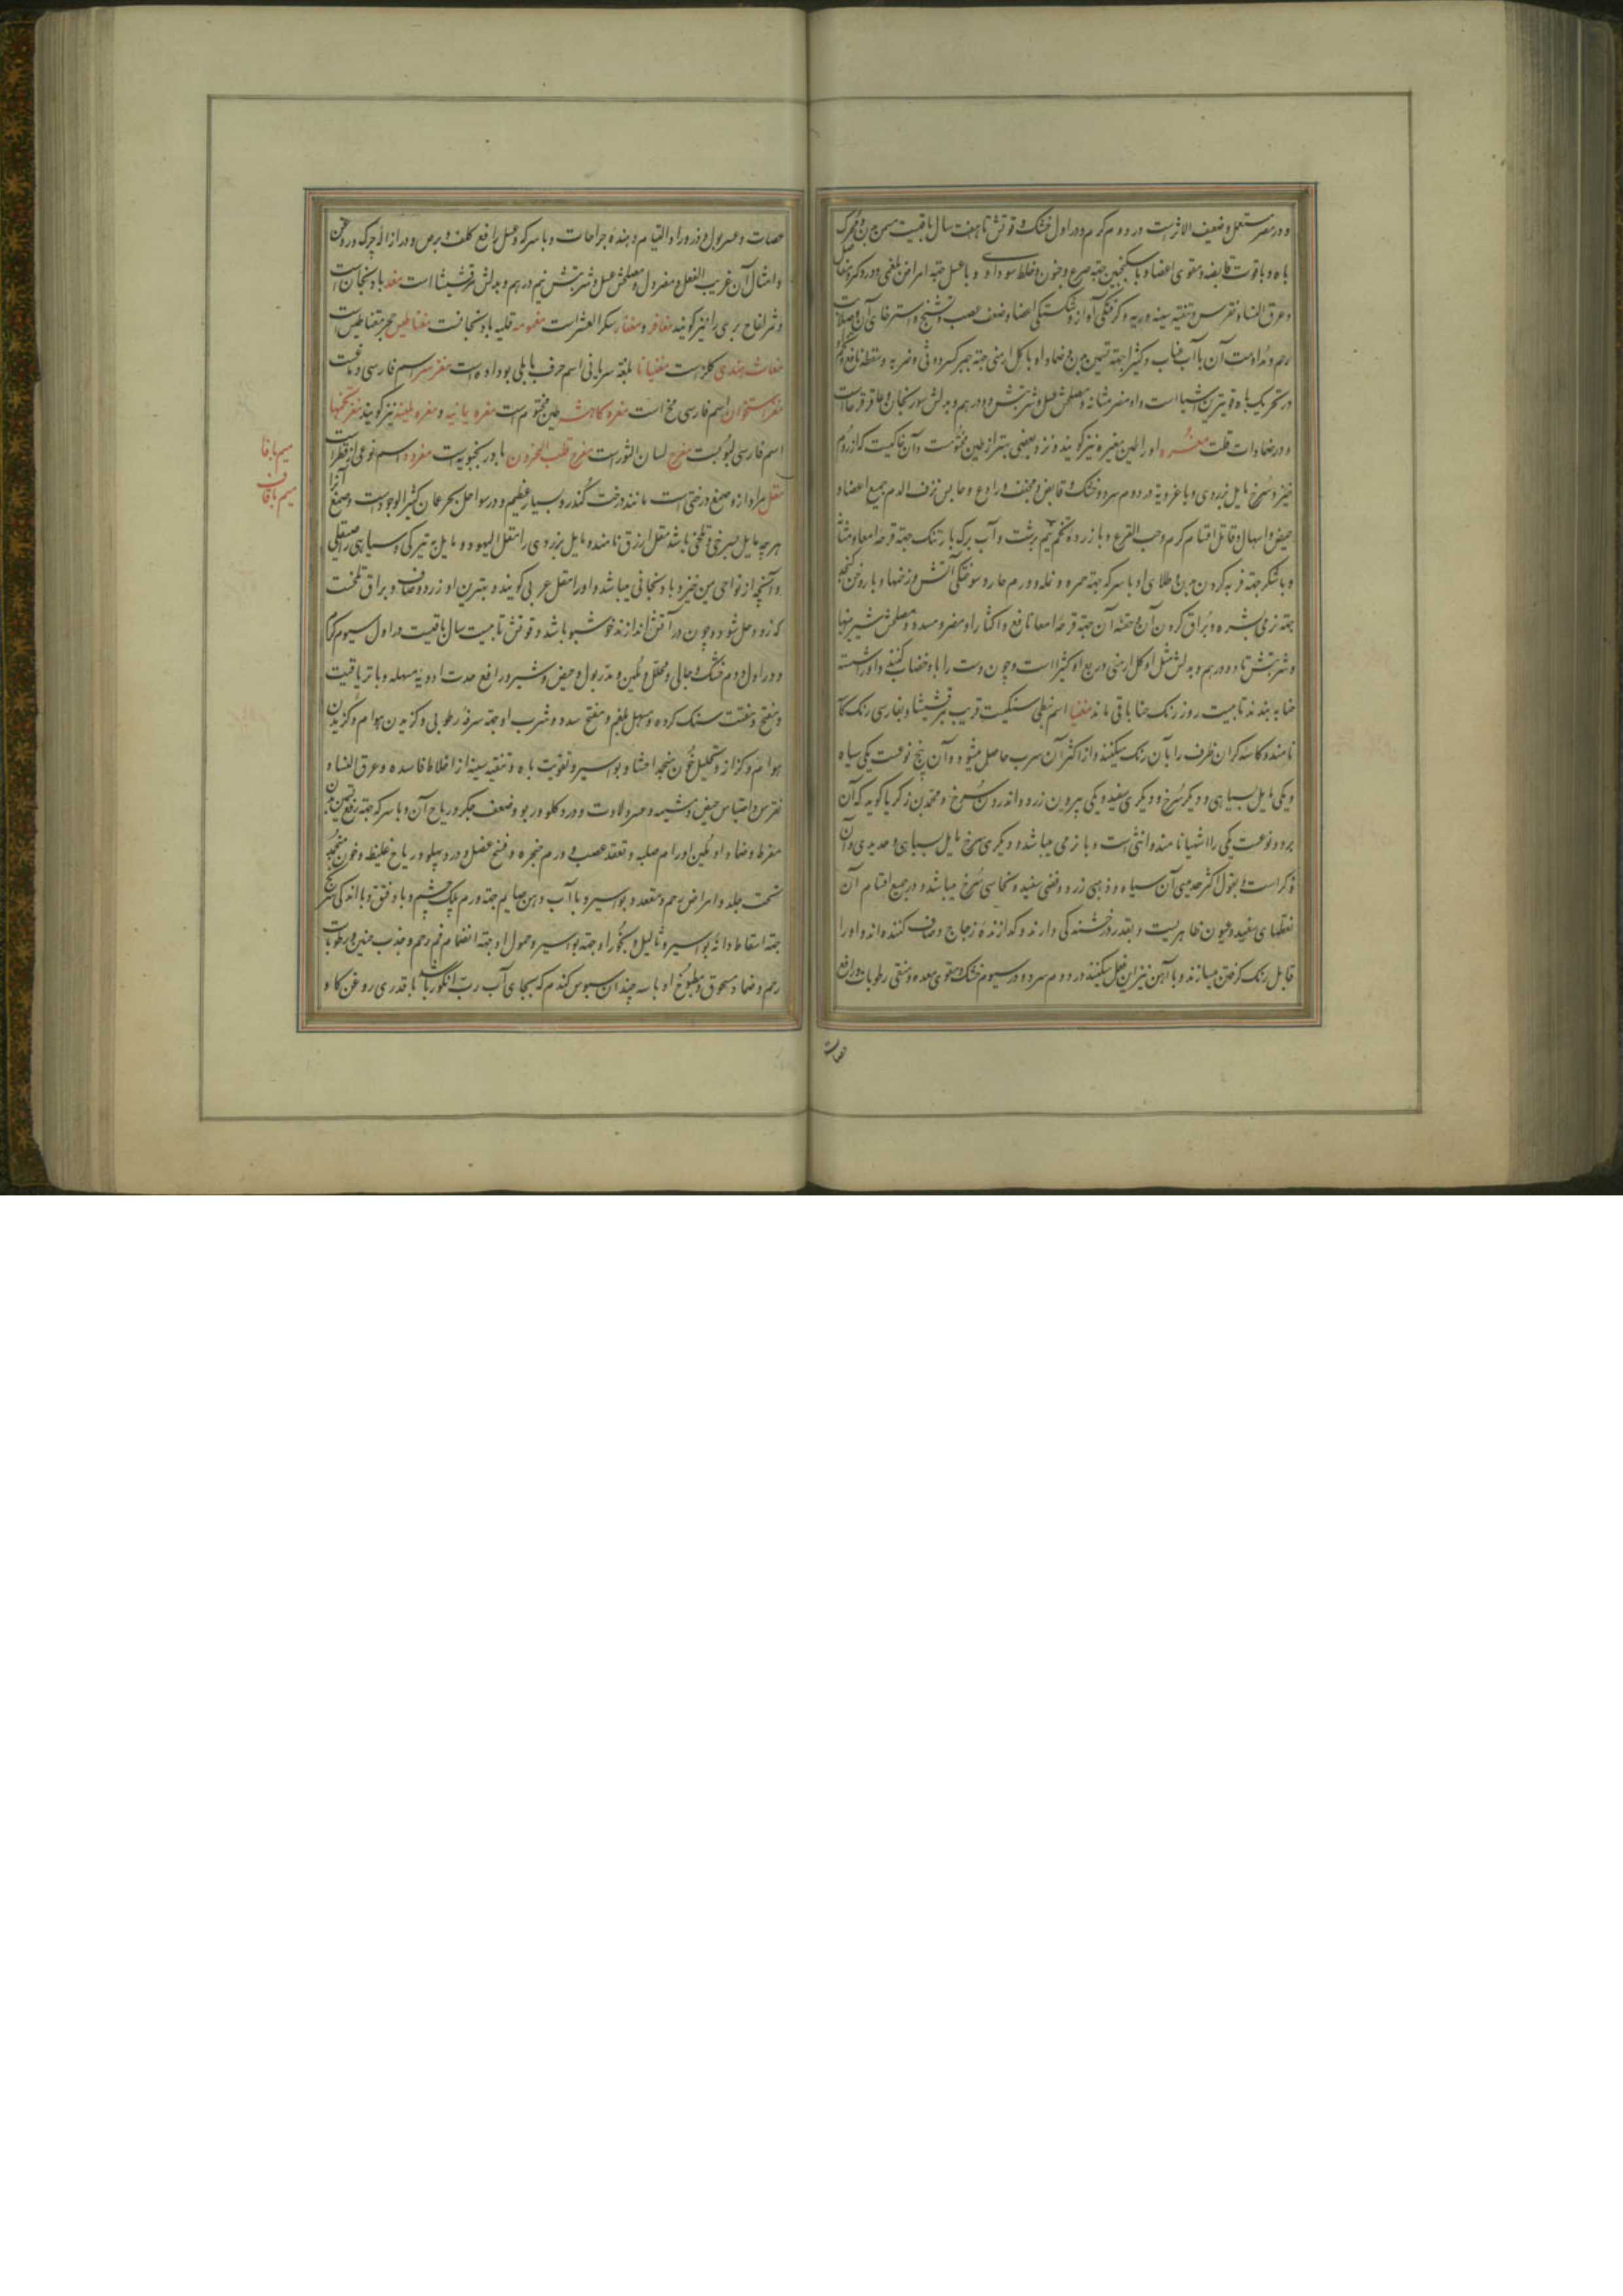 و در مصر مستعمل و ضعیف الاثرست در دوم کرم و در اول خشک و قوتش تا هفت سال باقیست مسمن بدن و محرک
باه و با قوت قابضه و مقوی اعضا و با سکنجبین جهته صرع و جنون و خلط سوداوی و با عسل جهته امراض بلغمی و درد کمر و مفاصل
و عرق النسا و نقرس و تنقیه سینه و ریه و کرفتگی آواز و شکستگی اعضا و ضعف عصب و تشنج و استرخای آن و صلابت
رحم و مداومت آن با آب عناب و کثیرا جهته تسمین بدن و ضماد او با کل ارمنی جهته جبر کسر و وثی و ضربه و سقطه نافع و کویند
در تحریک باه قویترین اشیا است و او مضر مثانه و مصلحش عسل و شربتش دو درهم و بدلش سورنجان و عاقرقرحا است
و در ضمادات قلت مغره او را طین مغره نیز کویند و نزد بعضی بهتر از طین مختومست و آن خاکیست که از روم
خیزد سرخ مایل بزردی و با غرویة در دوم سرد و خشک و قابض و مجفف و رادع و حابس نزف الدم جمیع اعضا و
حیض و اسهال و قاتل اقسام کرم و حب القرع و با زرده تخم نیم برشت و آب برک بارتنک جهته قرحه امعا و مثانه
و با شکر جهته فربه کردن بدن و طلای او با سرکه جهته حمره و نمله و ورم حار و سوختکی آتش و زخمها و با روغن کنجد
جهته نرمی بشره و براق کردن آن و حقنه آن جهته قرحه امعا نافع و اکثار او مضر و مسدد و مصلحش شیرینیها
و شربتش تا دو درهم و بدلش مثل او کل ارمنی و ربع او کثیرا است و چون دست را با او خضاب کنند و او را شسته
حنا به بندند تا بیست روز رنک حنا باقی ماند مغنیا اسم نبطی سنکیست قریب بمرقشیشا و بفارسی رنک کآ
نامند و کاسه کران ظرف را با آن رنک میکنند و از اکثر آن سرب حاصل میشود و آن پنج نوعست یکی سیاه
و یکی مایل بسیاهی و دیکر سرخ و دیکری سفید و یکی بیرون زرد و اندرون سرخ و محمد بن زکریا کوید که آن
بر دو نوعست یکی را اشهبا نامند و انثی است و با نرمی میباشد و دیکری سرخ مایل بسیاهی و حدیدی و آن
ذکر است و بقول اکثر حدیدی آن سیاه و ذهبی زرد و فضی سفید و نحاسی سرخ میباشد و در جمیع اقسام آن
نقطهای سفید و عیون ظاهریست و بقدر درخشندکی دارند و کدازنده زجاج و صاف کننده اند و او را
قابل رنک کرفتن میسازند و با آهن نیز این فعل میکنند در دوم سرد و در سیوم خشک و مقوی معده و منقی رطوبات و رافع
حصات
حصات و عسر بول و ذرور او التیام دهنده جراحات و با سرکه و عسل رافع کلف و برص و در ازاله چرک و درخن
و امثال آن غریب الفعل و مضر دل و مصلحش عسل و شربتش نیم درهم و بدلش مرقشیشا است مغد بادنجان است
و ثمر لفاح بری را نیز کویند مغافر و مغفار سکر العشر است مغمومه قلیه بادنجانست مغناطیس حجر مغناطیس است
مغاث هندی کلز است مغنیانا بلغة سریانی اسم حرف بابلی بود او ه است مغز سر اسم فارسی دماغست
مغز استخوان اسم فارسی مخ است مغره کاهشه طین مختوم است مغره یمانیه و مغره ملینه نیز کویند مغز تخمها
اسم فارسی لبوبست مفرح لسان الثورست مفرح قلب المحزون بادرنجبویه است مفرده اسم نوعی از قطر است
مقل مراد از و صمغ درختی است مانند درخت کندر و بسیار عظیم و در سواحل بحر عمان کثیر الوجود است و صمغ آنرا
هر چه مایل بسرخی و تلخی باشد مقل ازرق نامند و مایل بزردی را مقل الیهود و مایل به تیرکی و سیاهی را صقلی
و آنچه از نواحی یمن خیزد بادنجانی میباشد و او را مقل عربی کویند و بهترین او زرد و صاف و براق تلخست
که زود حل شود و چون در آتش اندازند خوشبو باشد و قوتش تا بیست سال باقیست در اول سیوم کرم
و در اول دوم خشک و جالی و محلل و ملین و مدر بول و حیض و شیر و رافع حدت ادویه مسهله و با تریاقیت
و منضج و مفتت سنک کرده و مسهل بلغم و مفتح سدد و شرب او جهته سرفه رطوبی و کزیدن هوام و کزیدن
هوا هم و کزاز و تحلیل خون منجمد احشا و بواسیر و تقویت باه و تنقیه سینه از اخلاط فاسده و عرق النسا و
نقرس و احتباس حیض و مشیمه و عسر ولادت و درد کلو و ربو و ضعف جکر و ریاح آن و با سرکه جهته رفع تسمین بدن
مفرط و ضماد او ملین اورام صلبه و تعقد عصب و ورم حنجره و فسخ عضل و درد پهلو و ریاح غلیظه و خون منجمد
تحت جلد و امراض رحم و مقعد و بواسیر و با آب دهن صایم جهته ورم پلک چشم و باد فتق و با اندکی شکر
جهته اسقاط دانه بواسیر و ثالیل و بخور او جهته بواسیر و حمول او جهته انضمام فم رحم و جذب جنین و رطوبات
رحم و ضماد مسحوق و مطبوخ او با سه چندان سبوس کندم که بجای آب رب انکور باشد با قدری روغن کاو
میم با فا
میم با قاف